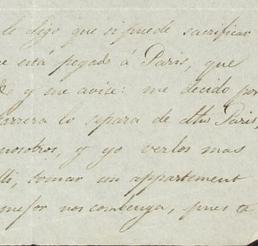 lo digo que si puede sacrificar
e está pegado á Paris, que
y me avise: me decido por
lo separa de
nosotros, y yo verlos mas
tomar un appartement
mejor nos combenga, pues ta